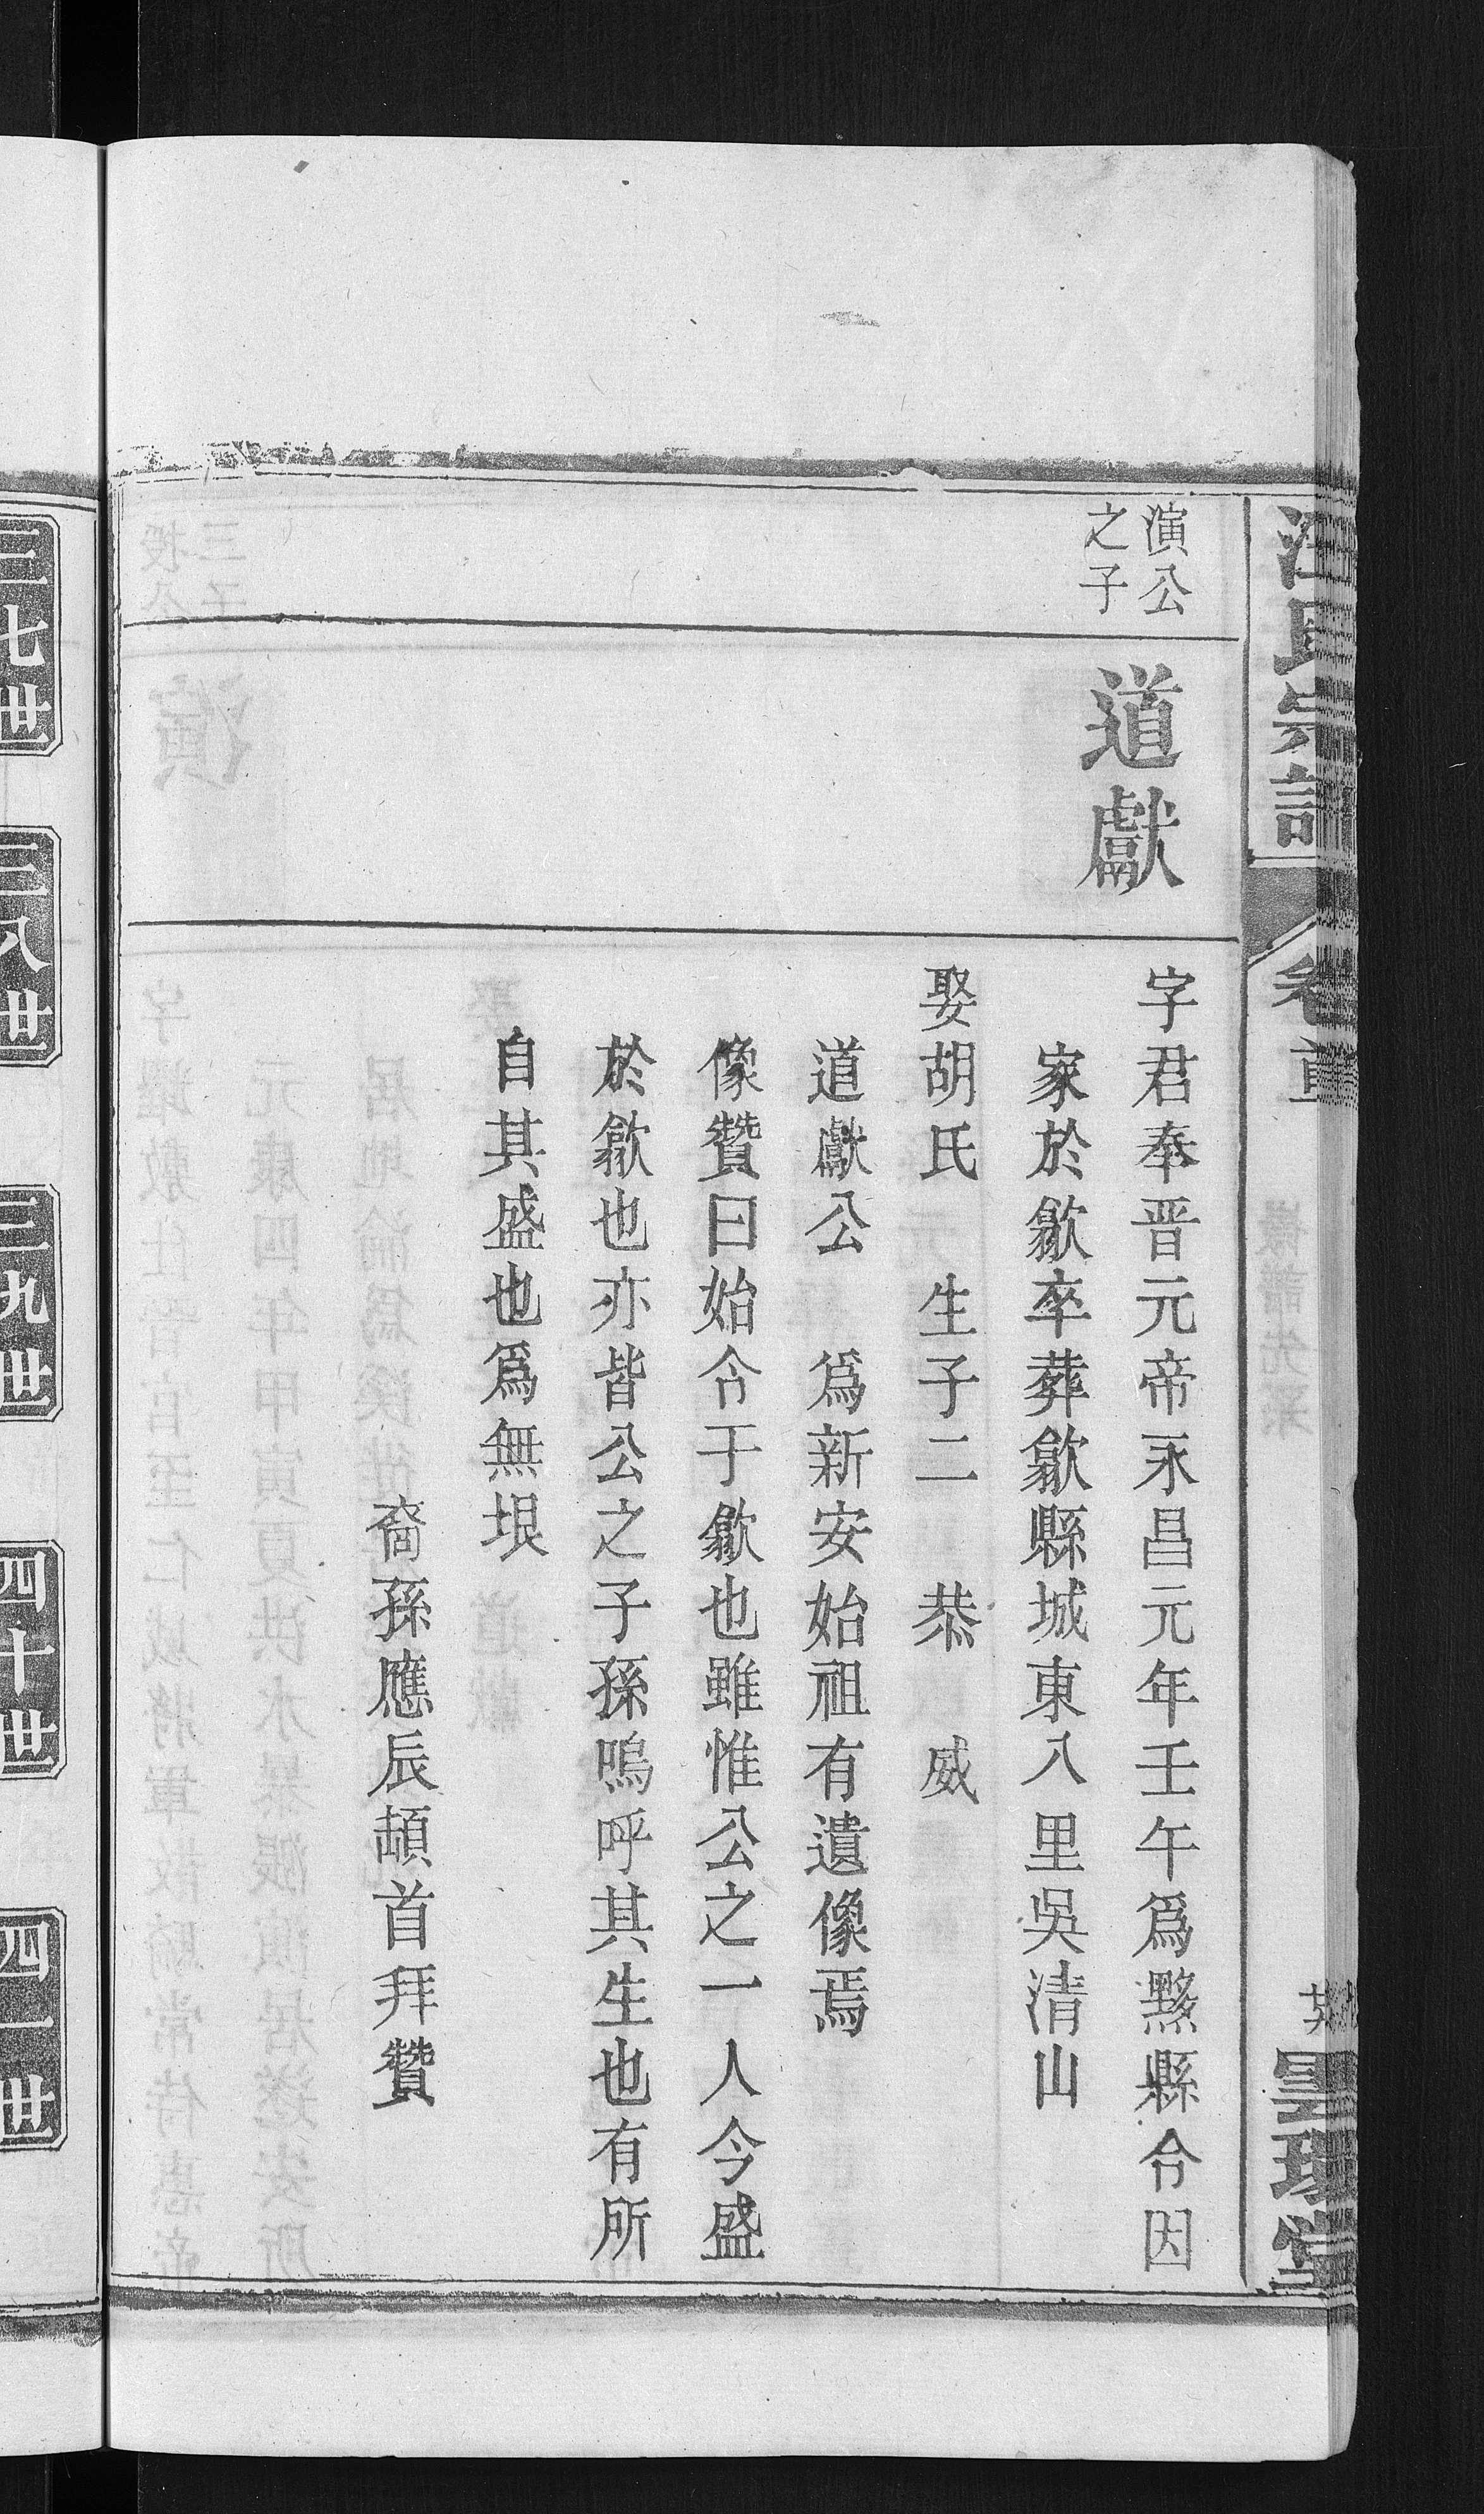 演公
之子
道獻
字君奉晋元帝永昌元年壬午爲黟縣令因
家於歙卒葬歙縣城東八里吳清山
娶胡氏　生子二　恭　威
道獻公　爲新安始祖有遺像焉
像贊曰始令于歙也雖惟公之一人今盛
於歙也亦皆公之子孫嗚呼其生也有所
自其盛也爲無垠
裔孫應辰頡首拜贊
三七世
三八世
三九世
四十世
四一世